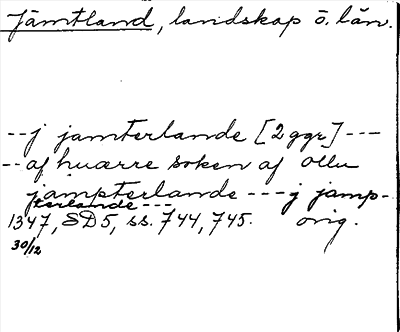 Jämtland, landskap o. län.
--j jamterlande [2 ggr] ---
-- af huærre soken af ollu
jampterlande --- j jamp-
terlande ---
1347, SD5, ss. 744, 745. orig.
30/12